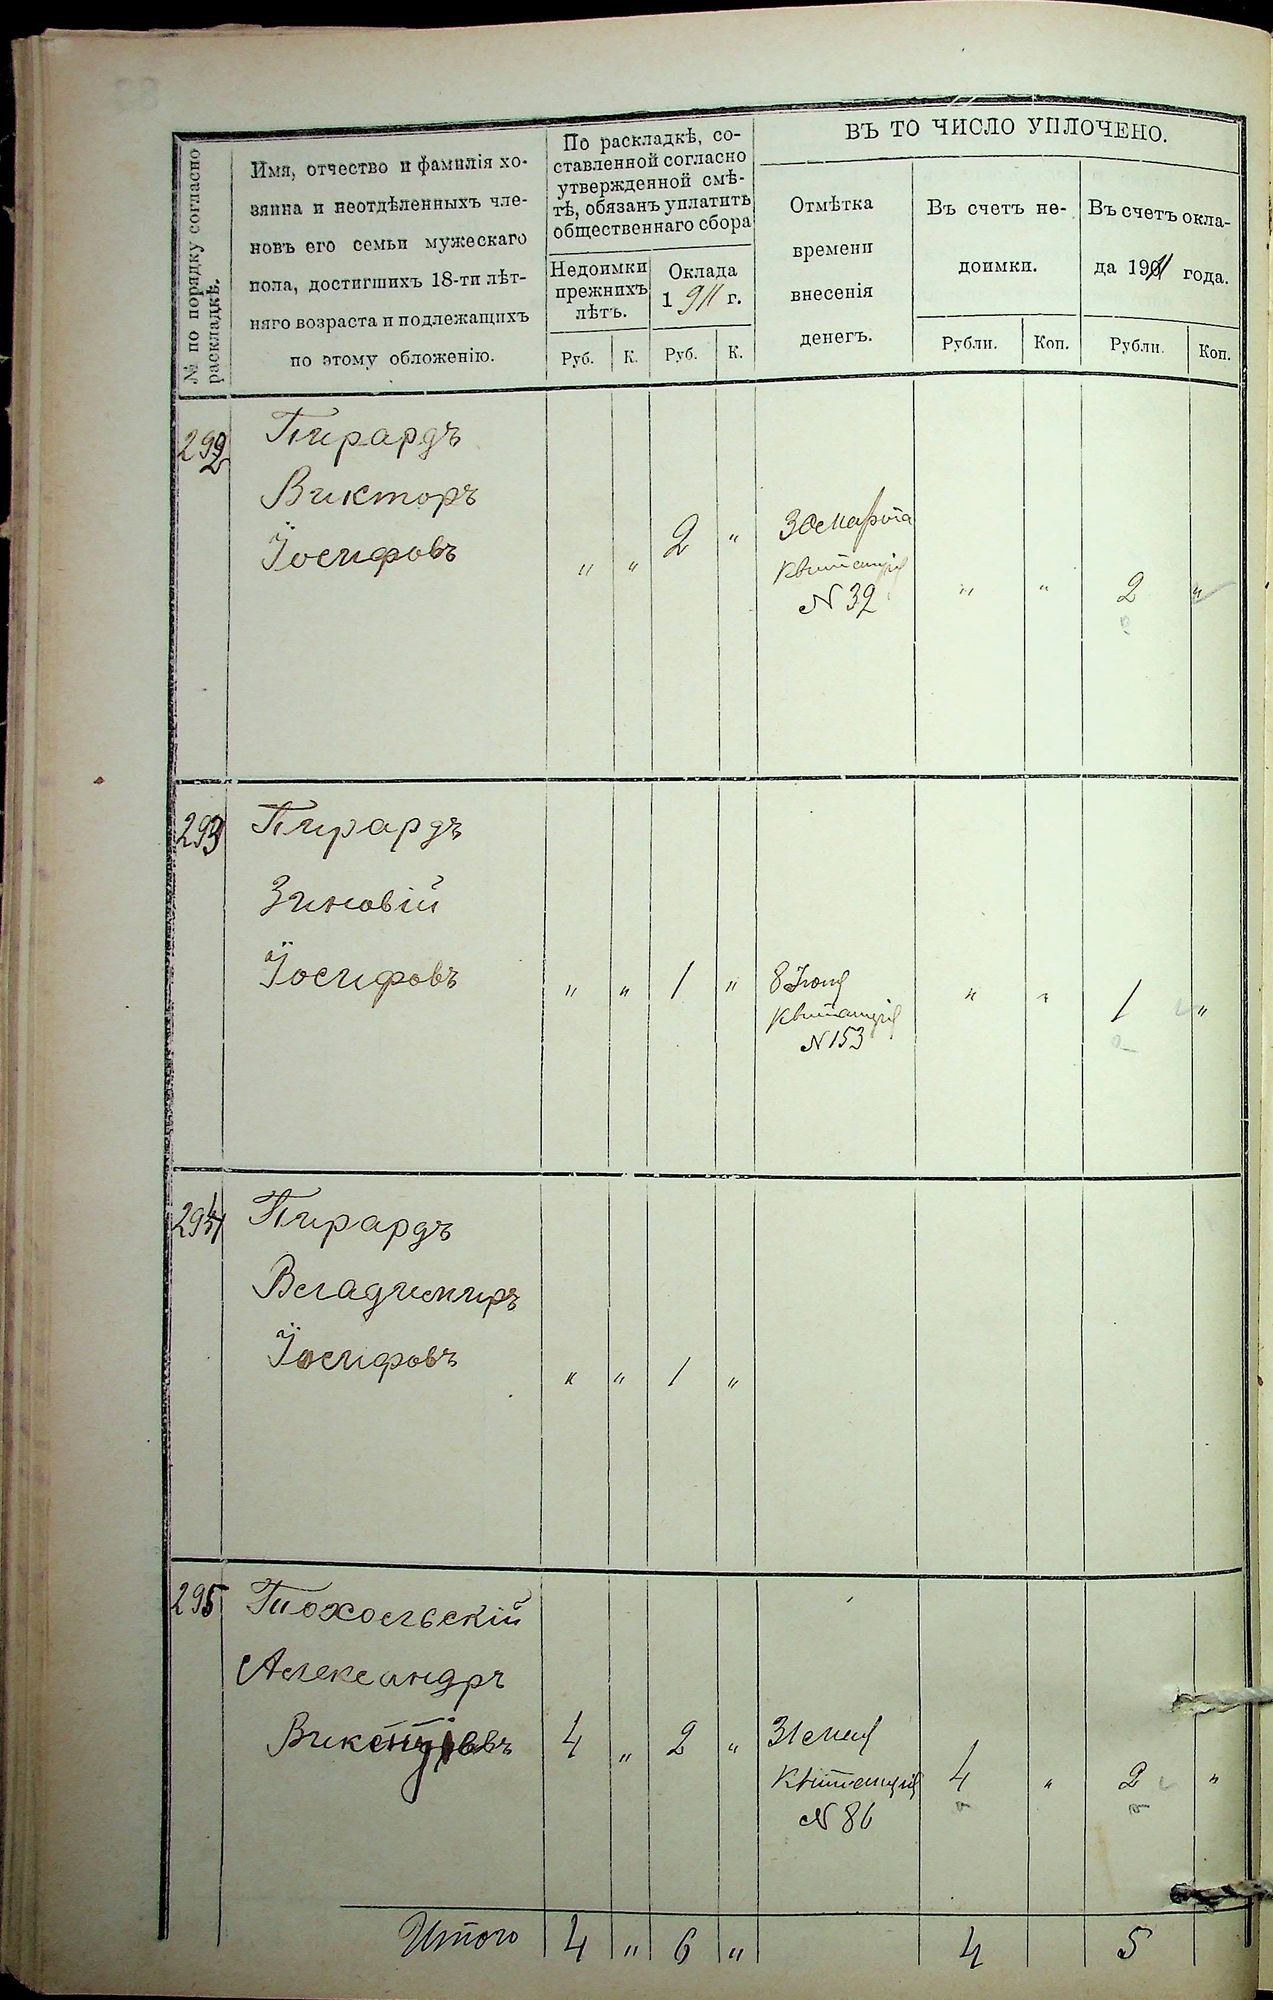 ВЪ ТО ЧИСЛО УПЛОЧЕНО.
№ по порядку согласно
раскладкѣ.
Имя, отчество и фамилія хо-
зяина и неотдѣленныхъ чле-
новъ его семьи мужескаго
пола, достигшихъ 18-ти лѣт-
няго возраста и подлежащихъ
по этому обложенію.
По раскладкѣ, со-
ставленной согласно
утвержденной смѣ-
тѣ, обязанъ уплатить
общественнаго сбора
Недоимки
прежнихъ
лѣтъ.
Оклада
1911 г.
Отмѣтка
времени
внесенія
денегъ.
Въ счетъ не-
доимки.
Въ счетъ окла-
да 1911 года.
Руб. К. Руб. К. Рубли. Коп. Рубли. Коп.
292 Пирардъ
Викторъ
Іосифовъ " " 2 " 30 Марта
Квитанція
№ 32 " " 2 "
293 Пирардъ
Зиновій
Іосифовъ " " 1 " 8 Іюня
Квитанція
№ 153 " " 1 "
294 Пирардъ
Владимиръ
Іосифовъ " " 1 "
295 Похольскій
Александръ
4 " 2 " 31 Мая
Квитанція 4 " 2 "
№ 86
Итого 4 " 6 " 4 5